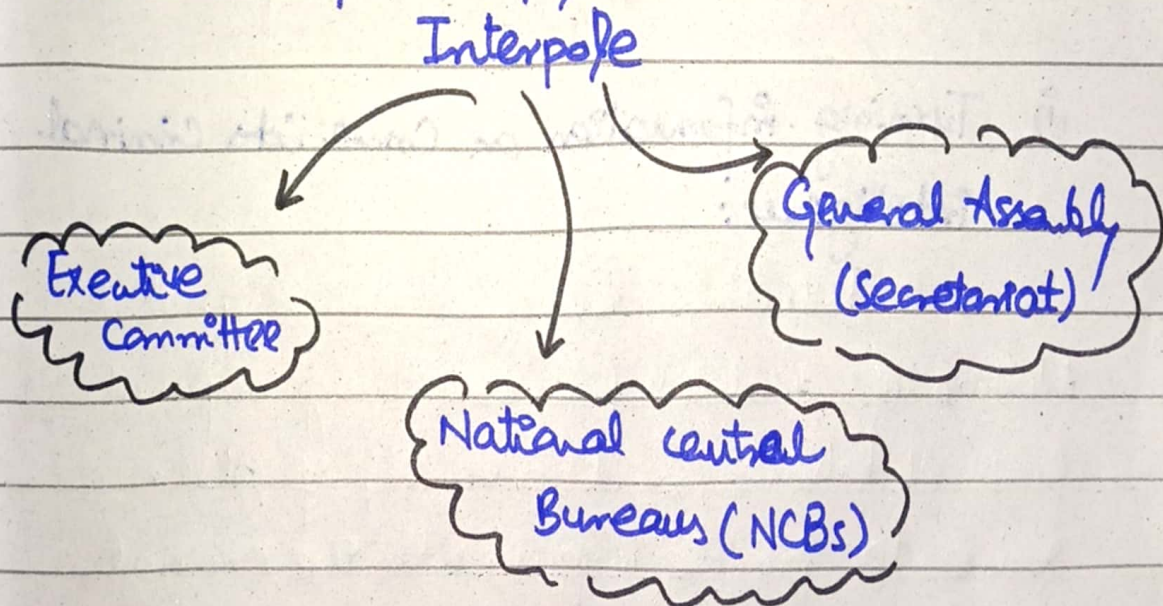 Interpole
Exeutive
Committee
General Assembly
(Secretariat)
National central
Bureaus (NCBs)